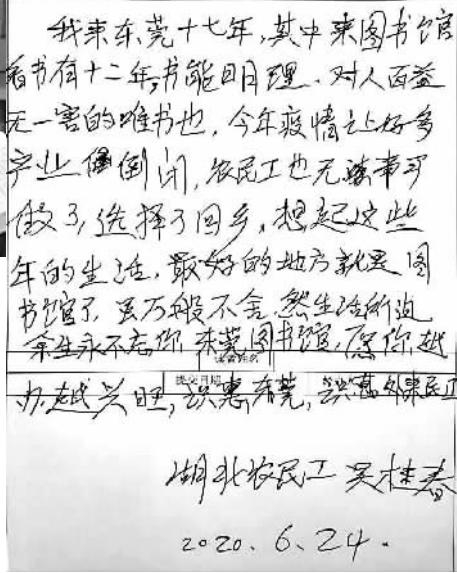 我来东莞十七年,其中来图书馆
看书有十二年,书能明理、对人百益
无一害的唯书也,今年疫情让好多
产业倒闭,农民工也无事可
做了,选择了回乡,想起这些
年的生活,最好的地方就是图
书馆了,虽万般不舍,然生活所迫
余生永不忘你,东莞图书馆,愿你越
读者姓名
提交日期
办越兴旺,识惠东莞,识惠外来民工
湖北农民工 吴桂春
2020.6.24.